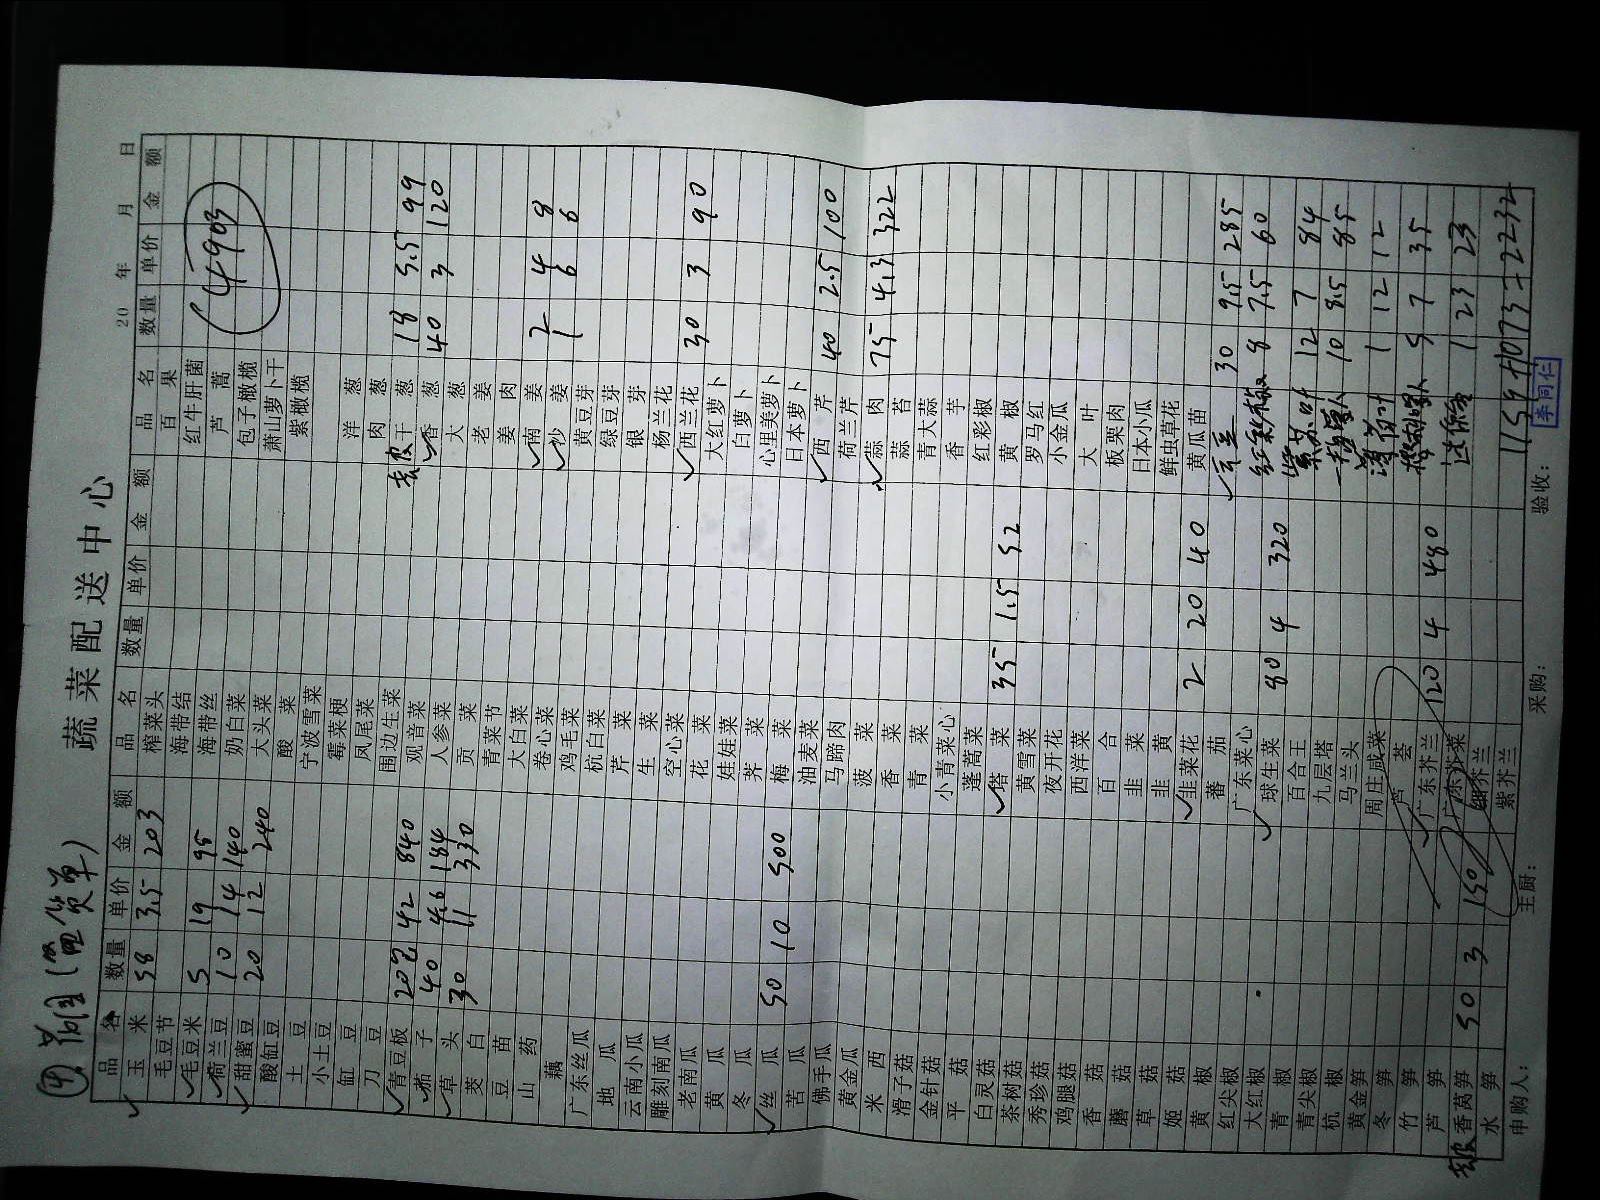 ④ 菊园(留货单)
蔬菜配送中心
20 年 月 日
品名 数量 单价 金额 品名 数量 单价 金额 品名 数量 单价 金额
玉米 58 3.5 203 榨菜头 百果
毛豆节 海带结 红牛肝菌
毛豆米 5 19 95 海带丝 芦蒿
荷兰豆 10 14 140 奶白菜 包子橄榄
甜蜜豆 20 12 240 大头菜 萧山萝卜干
酸缸豆 酸菜 紫橄榄
土豆 宁波雪菜
小土豆 霉菜梗 洋葱
缸豆 凤尾菜 肉葱
刀豆 围边生菜 干葱 18 5.5 99
青豆板 20包 42 840 观音菜 香葱 40 3 120
茄子 40 4.6 184 人参菜 大葱
草头 30 11 330 贡菜 老姜
茭白 青菜节 姜肉
豆苗 大白菜 南姜 2 4 8
山药 卷心菜 沙姜 1 6 6
藕 鸡毛菜 黄豆芽
广东丝瓜 杭白菜 绿豆芽
地瓜 芹菜 银芽
云南小瓜 生菜 杨兰花
雕刻南瓜 空心菜 西兰花 30 3 90
老南瓜 花菜 大红萝卜
黄瓜 娃娃菜 白萝卜
冬瓜 荠菜 心里美萝卜
丝瓜 50 10 500 梅菜 日本萝卜
苦瓜 油麦菜 西芹 40 2.5 100
佛手瓜 马蹄肉 荷兰芹
黄金瓜 菠菜 蒜肉 75 4.3 322
米西 香菜 蒜苔
滑子菇 青菜 青大蒜
金针菇 小青菜心 香芋
平菇 蓬蒿菜 红彩椒
白灵菇 塔菜 35 1.5 52 黄椒
茶树菇 黄雪菜 罗马红
秀珍菇 夜开花 小金瓜
鸡腿菇 西洋菜 大叶
香菇 百合 板栗肉
蘑菇 韭菜 日本小瓜
草菇 韭黄 鲜虫草花
姬菇 韭菜花 2 20 40 黄瓜苗
黄椒 番茄 30 9.5 285
红尖椒 广东菜心 8 7.5 60
大红椒 球生菜 80 4 320 紫苏叶 12 7 84
青椒 百合王 10 8.5 85
青尖椒 九层塔 1 12 12
杭椒 马兰头 5 7 35
黄金笋 周庄咸菜 1 23 23
冬笋 芦荟
竹笋 广东芥兰 120 4 480
芦笋 广东芥菜
香莴笋 50 3 150 细芥兰
水笋 紫芥兰
申购人: 主厨: 采购: 验收:
4903
李同仁